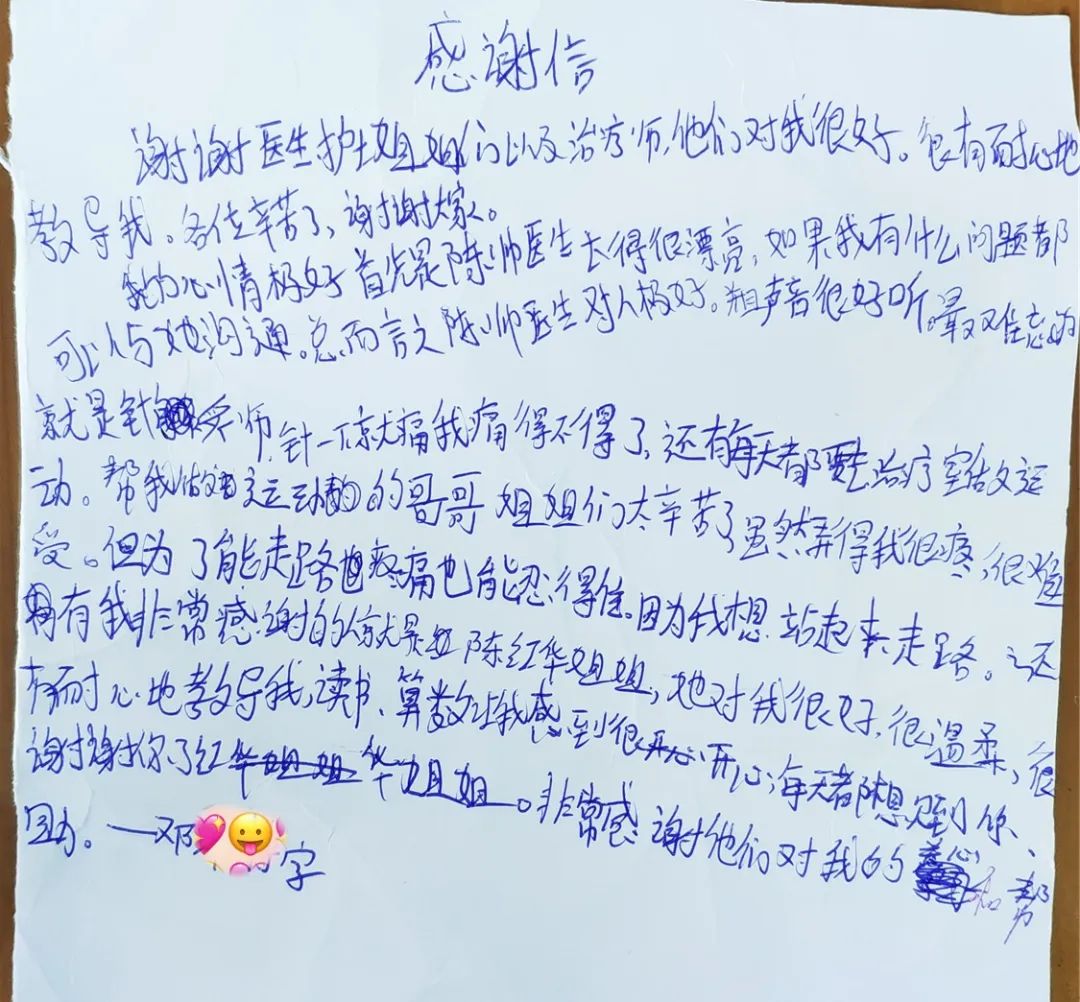 感谢信
谢谢医生护士姐姐们以及治疗师,他们对我很好。很有耐心地
教导我。各位辛苦了,谢谢大家。
我的心情极好首先是陈帅医生长得很漂亮,如果我有什么问题都
可以与她沟通。总而言之陈帅医生对人极好。声音很好听。最难忘的
就是针灸师,针一下就痛我痛得不得了,还有每天都要去治疗室做运
动。帮我做运动的哥哥姐姐们太辛苦了虽然弄得我很疼,很难
受。但为了能走路疼痛也能忍得住。因为我想站起来走路。还
有我非常感谢的就是陈红华姐姐,她对我很好,很温柔,很
有耐心地教导我,读书、算数让我感到很开心,每天都想见到你、
谢谢你了红华姐姐。非常感谢他们对我的关心和帮
助。—邓 字